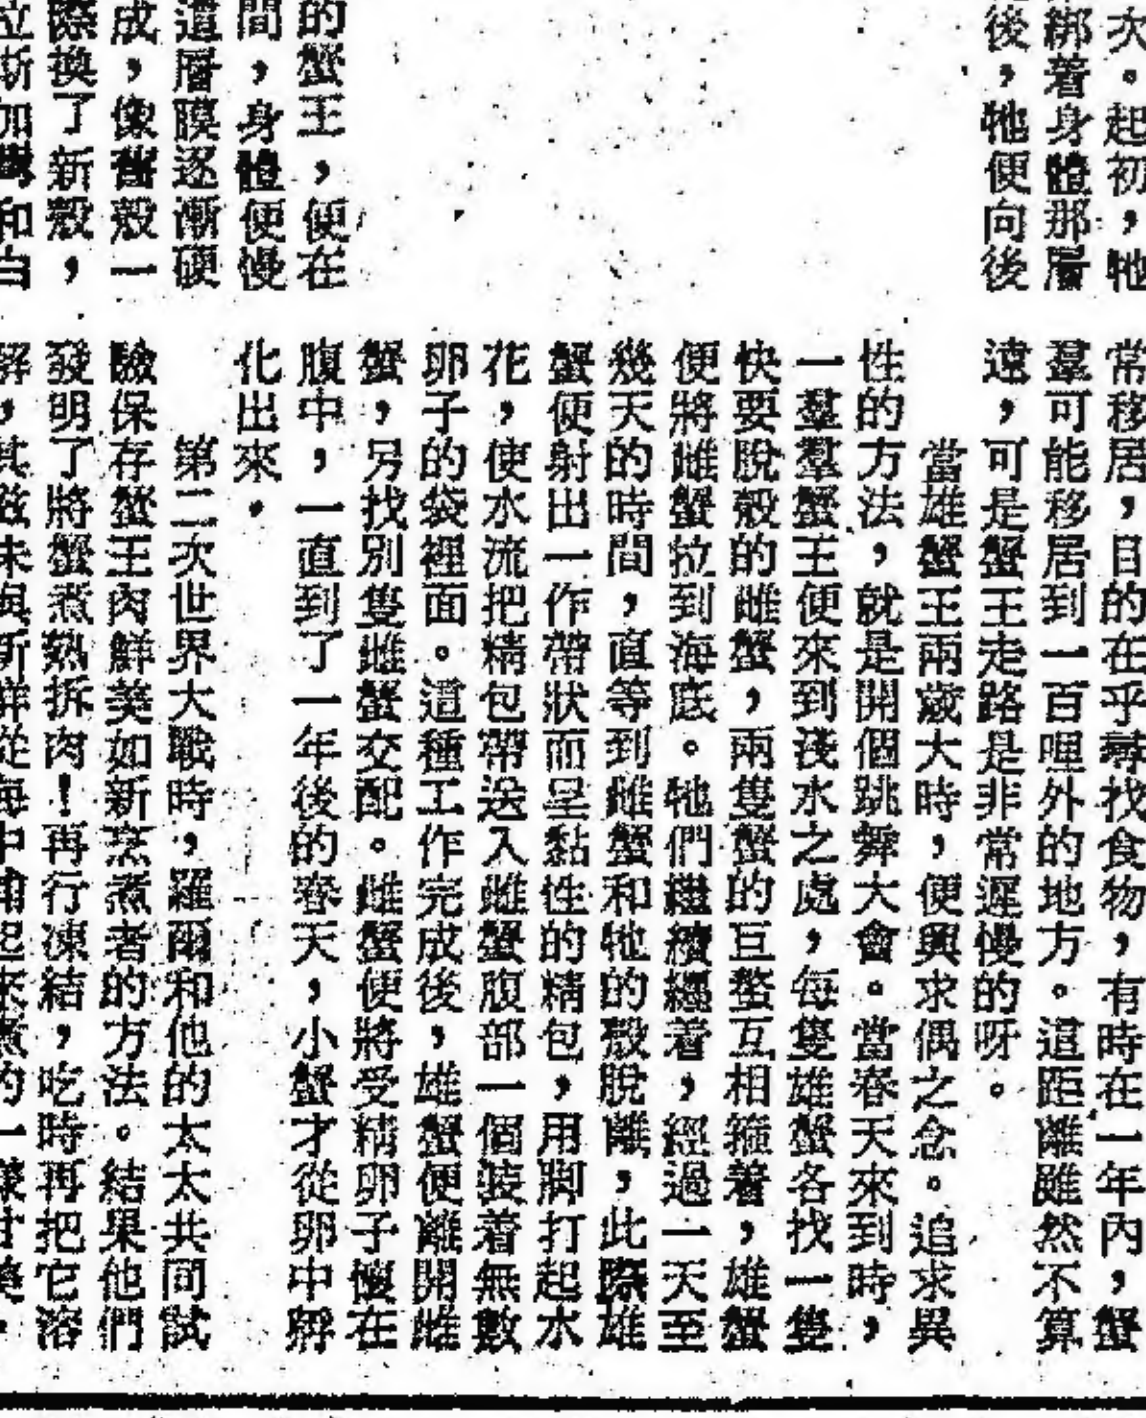 次。起初，牠
綁着身體那層
後，牠便向後
的蟹王，便在
間，身體便慢
這層膜逐漸硬
成，像舊殼一
際換了新殼，
常移居，目的在乎尋找食物，有時在一年內，蟹
羣可能移居到一百哩外的地方。這距離雖然不算
遠，可是蟹王走路是非常遲慢的呀。
當雄蟹王兩歲大時，便興求偶之念。追求異
性的方法，就是開個跳舞大會。當春天來到時，
一羣羣蟹王便來到淺水之處，每隻雄蟹各找一隻
快要脫殼的雌蟹，兩隻蟹的巨螯互相箍着，雄蟹
便將雌蟹拉到海底。牠們繼續纏着，經過一天至
幾天的時間，直等到雌蟹和牠的殼脫離，此際雄
蟹便射出一作帶狀而呈黏性的精包，用脚打起水
花，使水流把精包帶送入雌蟹腹部一個裝着無數
卵子的袋裡面。這種工作完成後，雄蟹便離開雌
蟹，另找別隻雌蟹交配。雌蟹便將受精卵子懷在
腹中，一直到了一年後的春天，小蟹才從卵中孵
化出來。
第二次世界大戰時，羅爾和他的太太共同試
驗保存蟹王肉鮮美如新烹煮者的方法。結果他們
發明了將蟹煮熟拆肉！再行凍結，吃時再把它溶